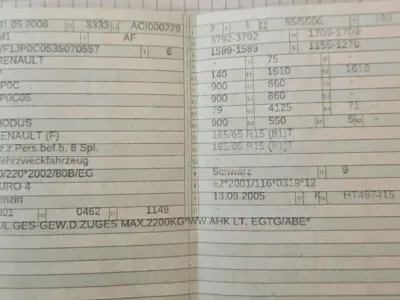 31.05.2006 3333 ACI000229
M1 AF
VF1JP0C0535070557 6
RENAULT
JP0C
JP0C05
MODUS
RENAULT (F)
Fz.z.Pers.bef.b. 8 Spl.
Mehrzweckfahrzeug
70/220*2002/80B/EG
EURO 4
Benzin
0001 0462 1149
ZUL.GES-GEW.D.ZUGES MAX.2200KG*WW.AHK LT. EGTG/ABE*
2 1 55/5500 163
3792-3792 1709-1709
1589-1589 1155-1270
- 75 -
140 1610 1610
900 860 -
900 860 -
79 4125 71
900 550 5 -
165/65 R15 (81)T
165/65 R15 (81)T
-
Schwarz 9
e2*2001/116*0319*12
13.09.2005 K HT487415